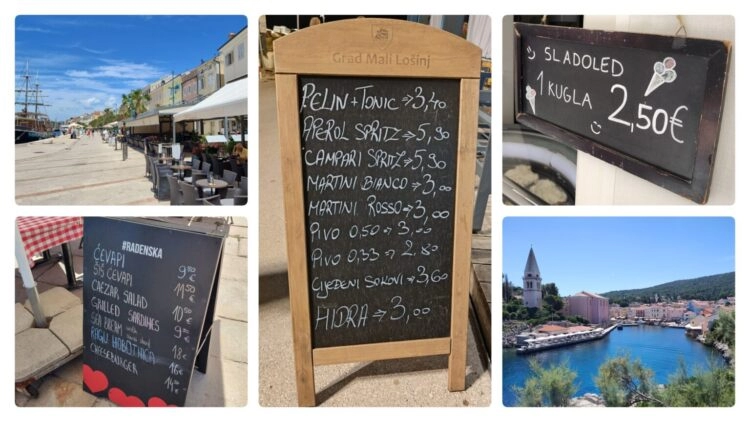 Grad Mali Lošinj
PELIN + TONIC → 3,40
APEROL SPRITZ → 5,90
CAMPARI SPRITZ → 5,90
MARTINI BIANCO → 3,00
MARTINI ROSSO → 3,00
PIVO 0,50 → 3,00
PIVO 0,33 → 2,80
CIJEĐENI SOKOVI → 3,60
HIDRA → 3,00
SLADOLED
1 KUGLA 2,50€
#RADENSKA
ĆEVAPI 9⁵⁰ €
ŠIŠ ĆEVAPI 11⁵⁰ €
CAEZAR SALAD 10⁵⁰ €
GRILLED SARDINES 9⁵⁰ €
SEA BREAM
RAGU HOBOTNICA
CHEESEBURGER